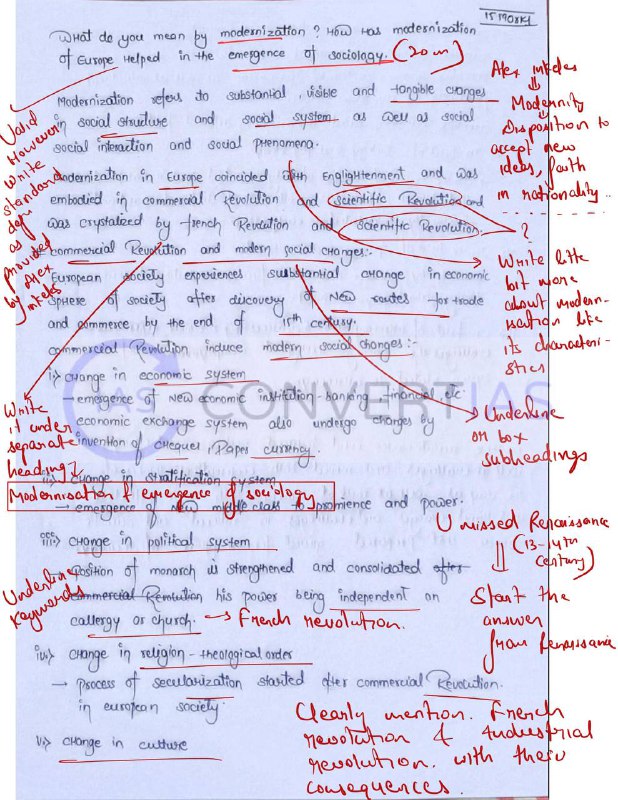 What do you mean by modernization? How has modernization
of Europe Helped in the emergence of sociology. (20m)
Modernization refers to substantial, visible and tangible changes
in social structure and social system as well as social
social interaction and social phenomena.
Modernization in Europe coincided with Englightenment and was
embodied in commercial Revolution and scientific Revolution and
was crystalized by french Revolution and scientific Revolution.
commercial Revolution and modern social changes:-
European society experiences substantial change in economic
sphere of society after discovery of New routes for trade
and commerce by the end of 15th century.
commercial Revolution induce modern social changes:-
i) change in economic system
→ emergence of New economic institution - banking, financial etc.
economic exchange system also undergo changes by
invention of chequer, Paper currency.
ii) change in stratification system
→ emergence of new middle class to promience and power.
iii) change in political system
→ position of monarch is strengthened and consolidated after
commercial Revolution his power being independent on
callergy or church. → French revolution.
iv) change in religion - theological order
→ process of secularization started after commercial Revolution.
in european society.
v) change in culture
Valid
However
write
standard
defn
as
provided
by Alex
inkels
Write
it under
separate
heading ↓
Modernisation & emergence of sociology
Underline
keywords
Alex inkeles
Modernity
Disposition to
accept new
ideas, faith
in rationality
?
Write little
bit more
about modern-
isation like
its characteri-
stics
Underline
or box
subheadings
U missed Renaissance
(13-14th
century)
Start the
answer
from Renaissance
Clearly mention French
revolution & industrial
revolution with their
consequences.
CONVERTIAS
IAS